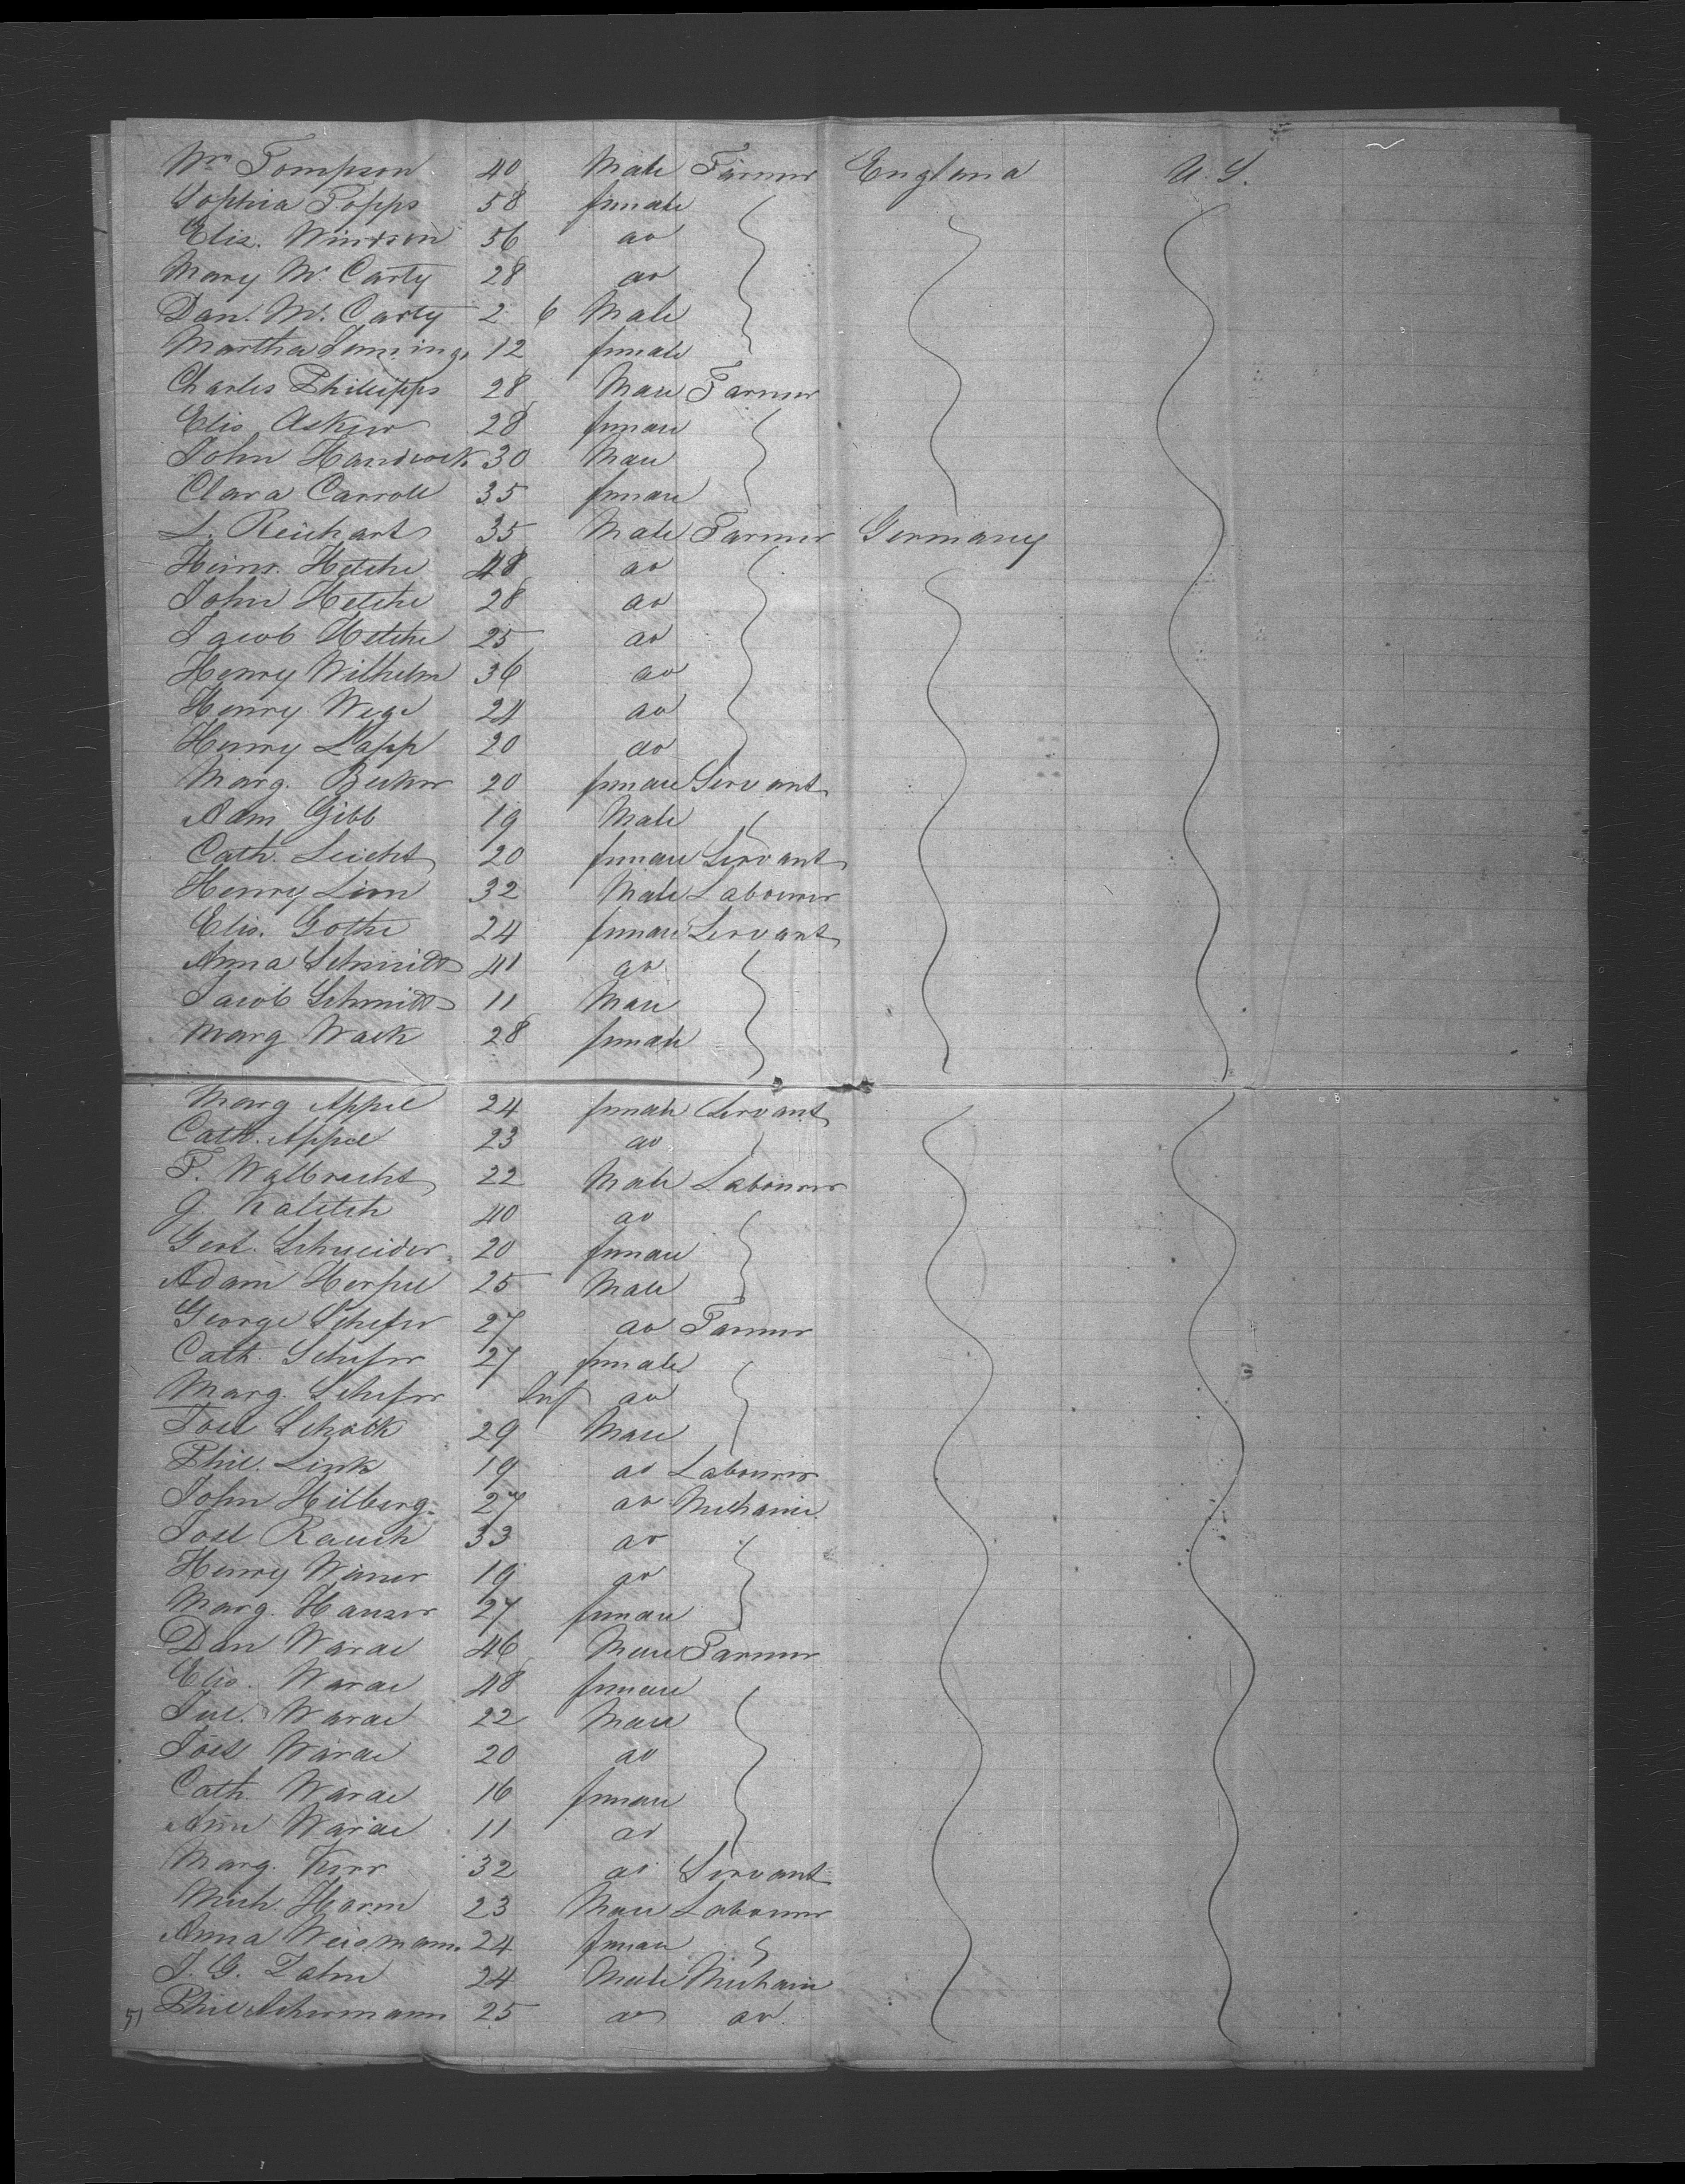 Wm Tompson 40 Male Farmer England U.S.
Sophia Topps 58 female
Eliz. Windson 56 do
Mary Mc Carty 28 do
Dan. Mc Carty 2 6 Male
Martha 12 female
Charles Phillipps 28 Male Farmer
Elis. Askew 28 female
John Handcock 30 Male
Clara Carroll 35 female
L. Reichart 35 Male Farmer Germany
Heinr. Hetche 48 do
John Hetche 28 do
Jacob Hetche 25 do
Henry Wilhelm 36 do
Henry Wege 24 do
Henry Lapp 20 do
Marg. Becker 20 female Servant
Adam Gibb 19 Male
Cath. Leicht 20 female Servant
Henry Lion 32 Male Labourer
Elis. Gothe 24 female Servant
Anna Schmidt 41 do
Jacob Schmidt 11 Male
Marg Wack 28 female
Marg Appel 24 female Servant
Cath. Appel 23 do
F. Walbrecht 22 Male Labourer
J. 40 do
Gert. Schneider 20 female
Adam Herpel 25 Male
George Schefer 27 do Farmer
Cath. Schefer 27 female
Marg. Schefer Inf do
Josl Schock 29 Male
Phil. Link 19 do Labourer
John Hilberg 27 do Mechanic
Josl Rauch 33 do
Henry Wiener 19 do
Marg. Hauser 27 female
Dan Warae 46 Male Farmer
Elis. Warae 48 female
Jul. Warae 22 Male
Josl Warae 20 do
Cath. Warae 16 female
Ann Warae 11 do
Marg. Kerr 32 do Servant
Mich. Harm 23 Male Labourer
Anna Weismann 24 female
J. G. Zahn 24 Male Mechanic
51 Phil Achermann 25 do do